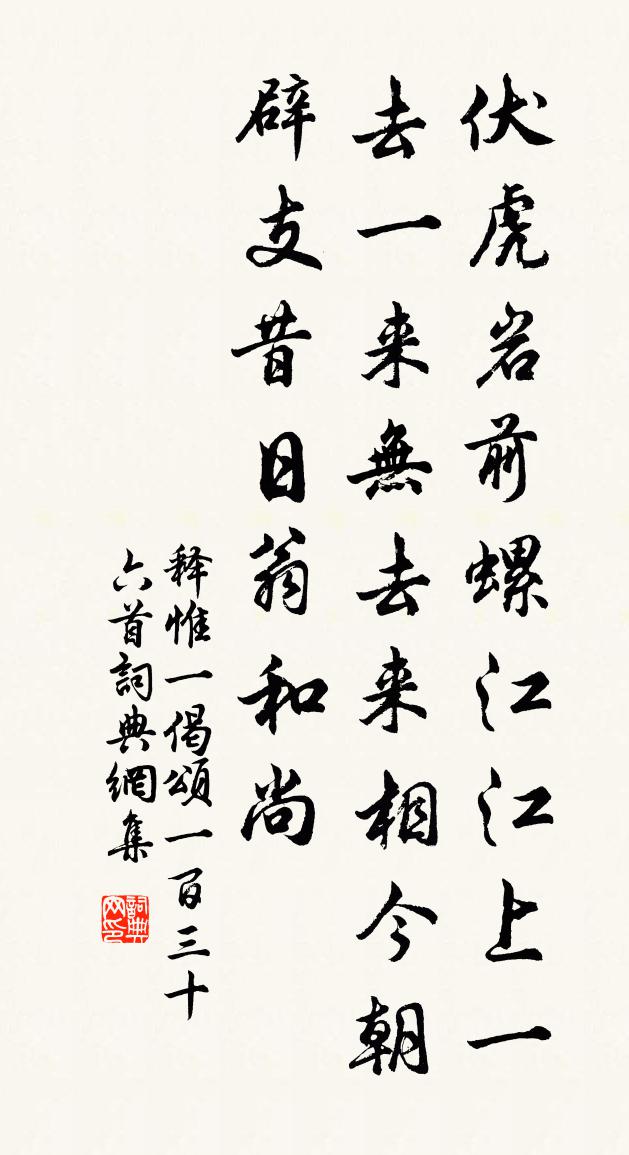 伏虎岩前螺江江上一
去一来無去来相今朝
辟支昔日翁和尚
释惟一偈頌一百三十
六首詞典網集
詞典网印